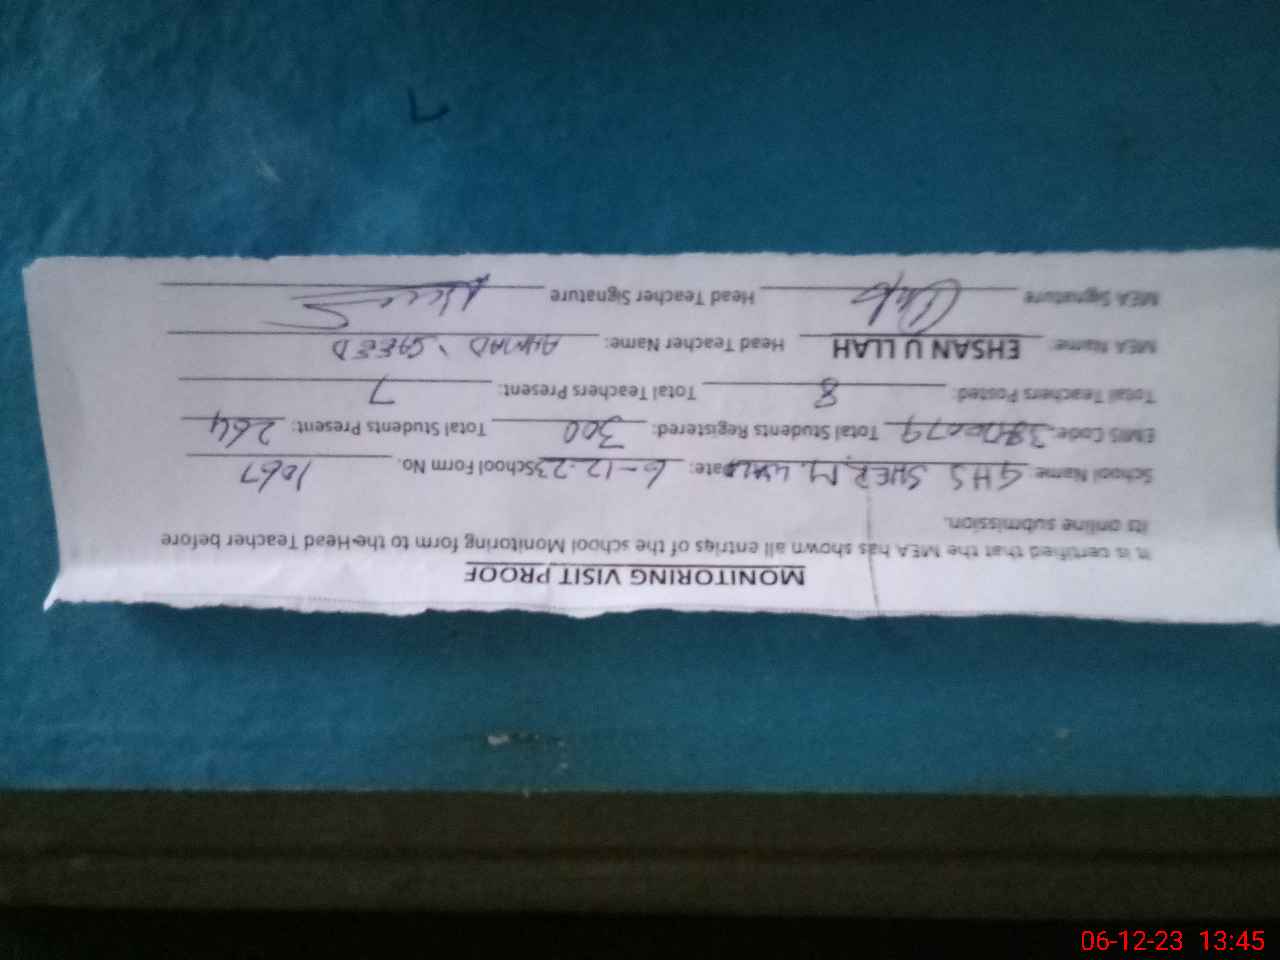 MONITORING VISIT PROOF
It is certified that the MEA has shown all entries of the school Monitoring form to the Head Teacher before
its online submission.
School Name: GHS SHER M. WALA Date: 6-12-23 School Form No. 1067
EMIS Code: Total Students Registered: 300 Total Students Present: 264
Total Teachers Posted: 8 Total Teachers Present: 7
MEA Name: EHSAN ULLAH Head Teacher Name: AHMAD SAEED
MEA Signature Head Teacher Signature
06-12-23 13:45